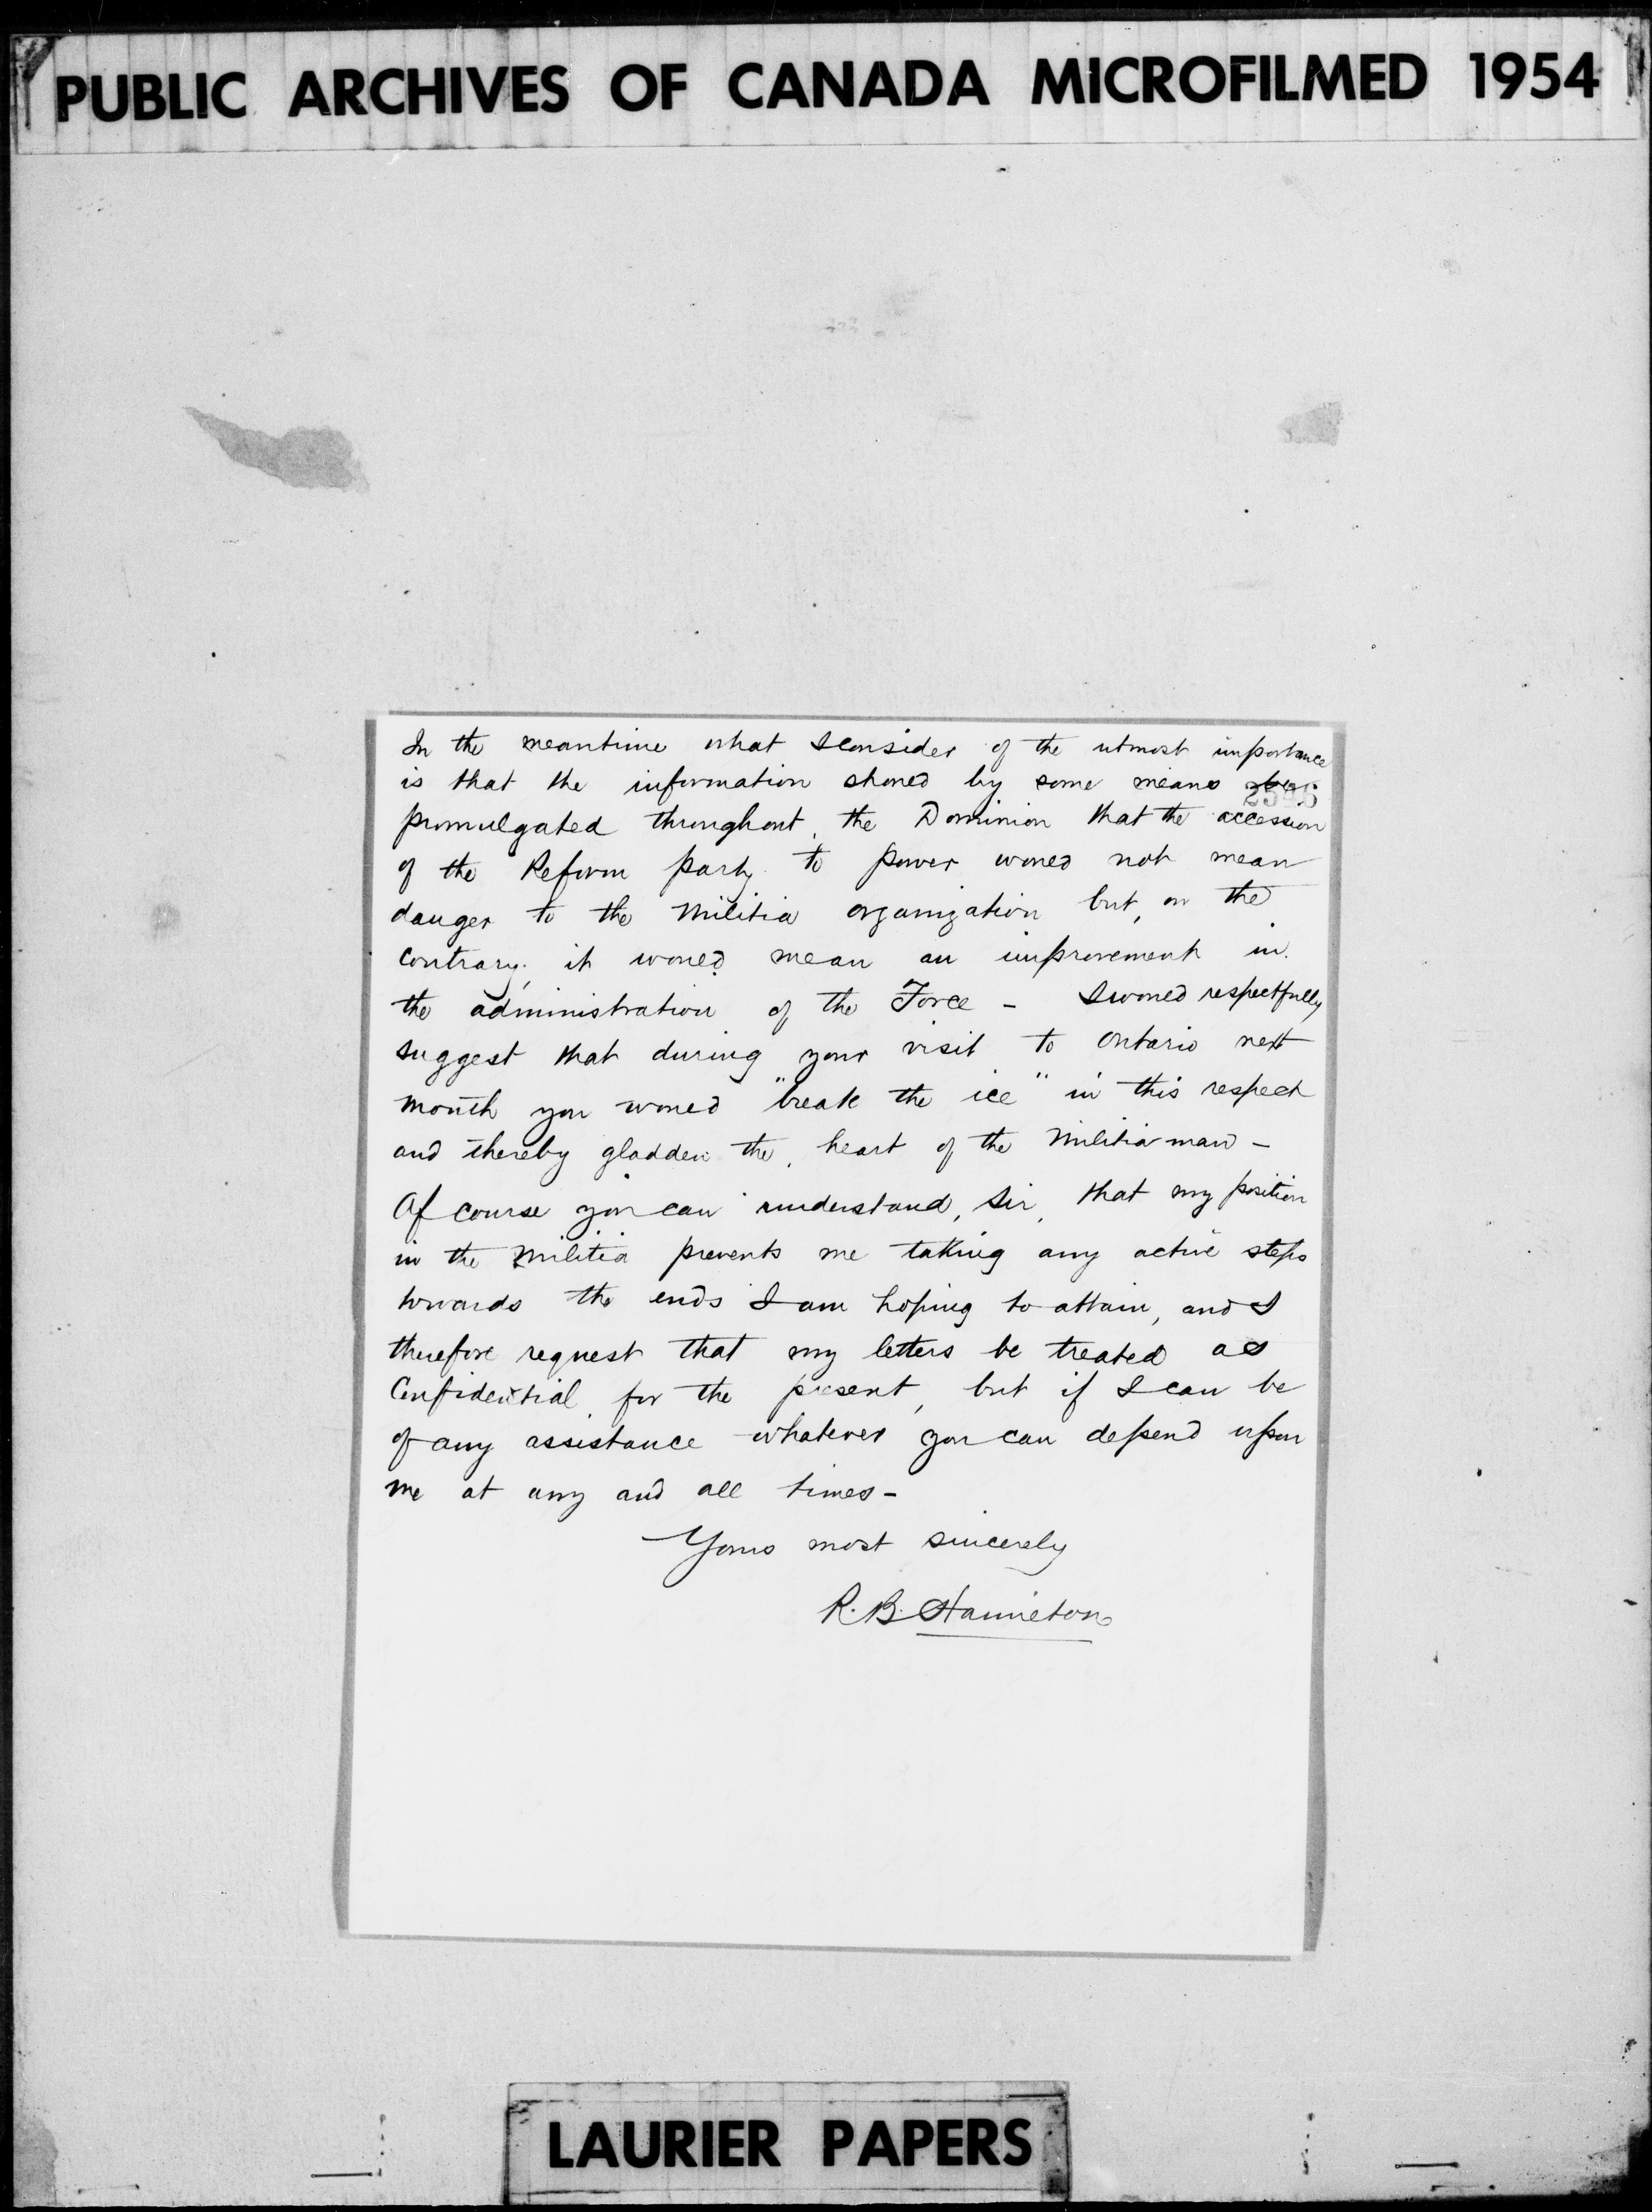 PUBLIC ARCHIVES OF CANADA MICROFILMED 1954
In the meantime what I consider of the utmost importance
is that the information should by some means be
promulgated throughout the Dominion that the accession
of the Reform party to power would not mean
danger to the Militia organization but, on the
contrary, it would mean an improvement in
the administration of the Force - I would respectfully
suggest that during your visit to Ontario next
month you would "break the ice" in this respect
and thereby gladden the heart of the Militia man -
Of course you can understand, Sir, that my position
in the Militia prevents me taking any active steps
towards the ends I am hoping to attain, and I
therefore request that my letters be treated as
Confidential for the present, but if I can be
of any assistance whatever you can depend upon
me at any and all times -
Yours most sincerely
R. B. Hamilton
LAURIER PAPERS